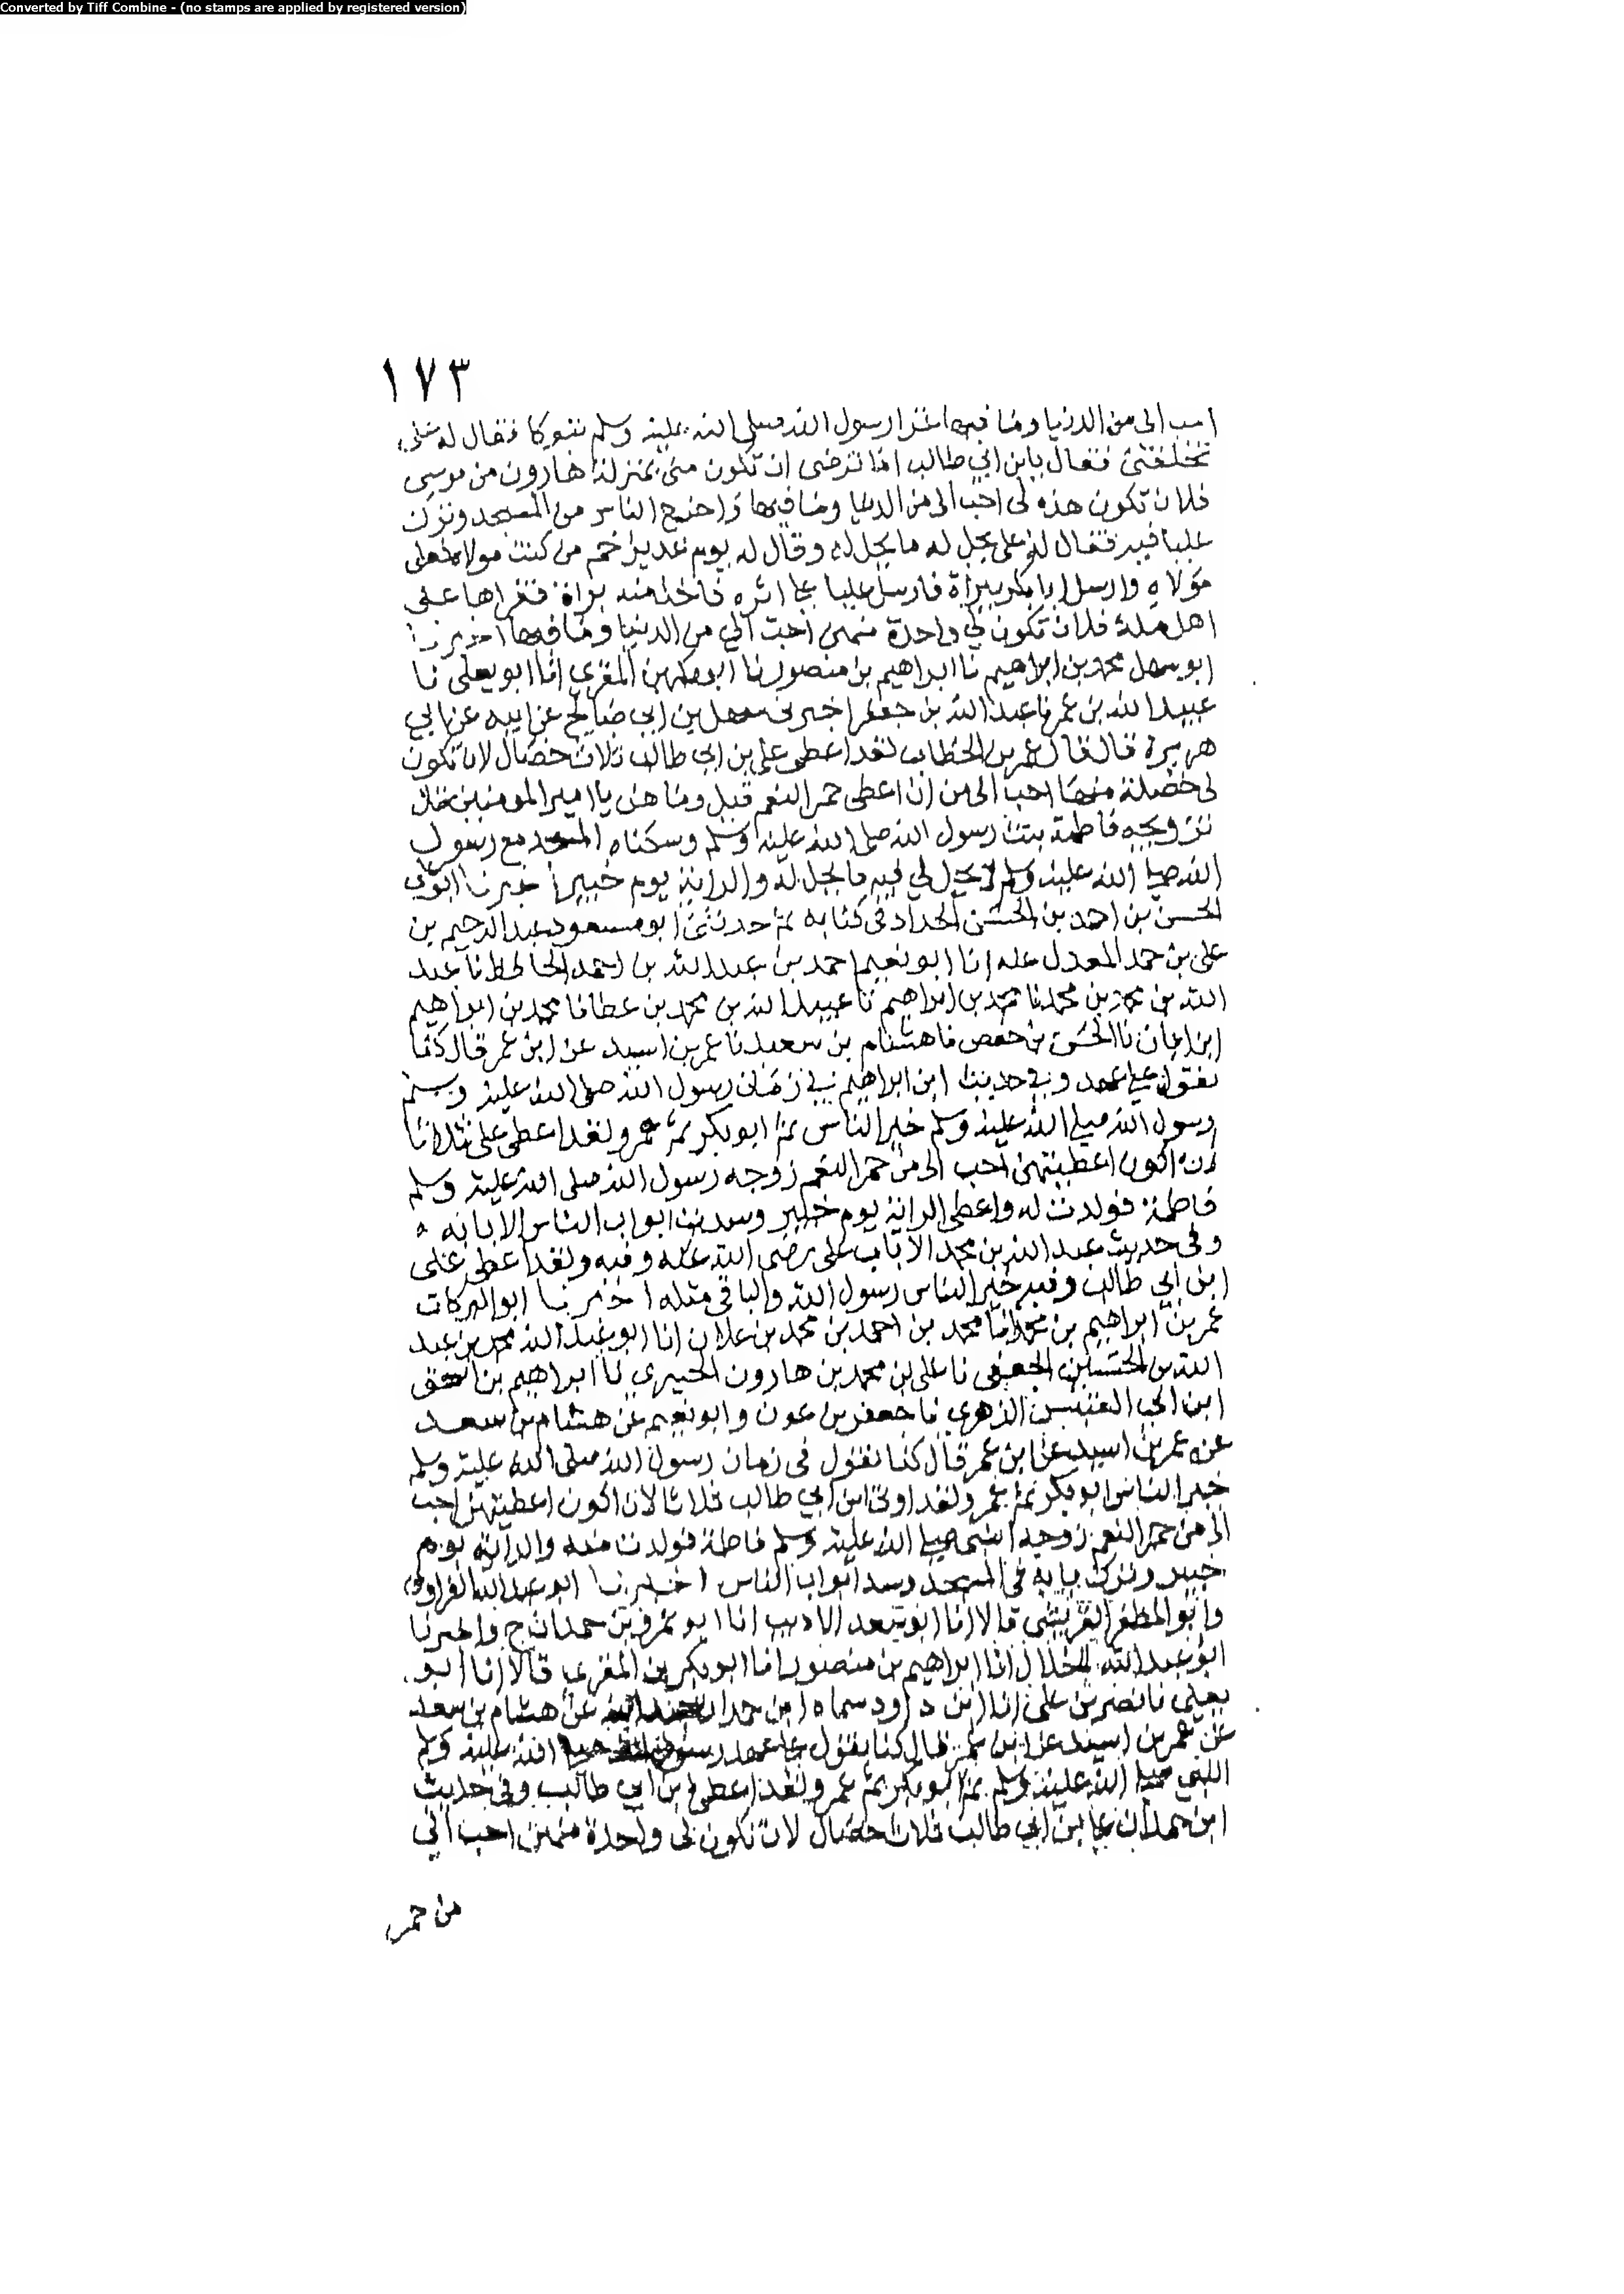 Converted by Tiff Combine - (no stamps are applied by registered version)
١٧٣
احب الى من الدنيا وما فيها غزا رسول الله صلى الله عليه وسلم تبوكا فقال له على
تخلفنى فقال يا بن ابي طالب اما ترضى ان تكون منى بمنزلة هارون من موسى
فلان تكون هذه لى احب الى من الدنيا وما فيها واخرج الناس من المسجد وترك
عليا فيه فقال له على يحل له ما يحل له وقال له يوم غدير خم من كنت مولاه فعلى
مولاه وارسل ابا بكر ببراة فارسل عليا على اثره فاخذ منه براة فقراها على
اهل مكة فلان تكون لي واحدة منهن احب الي من الدنيا وما فيها اخبرنا
ابو سهل محمد بن ابراهيم نا ابراهيم بن منصور نا ابو بكر بن المقري انا ابو يعلى نا
عبيد الله بن عمر نا عبد الله بن جعفر اخبرنى سهل بن ابي صالح عن ابيه عن ابي
هريرة قال قال عمر بن الخطاب لقد اعطى على بن ابي طالب ثلاث خصال لان تكون
لى خصلة منها احب الى من ان اعطى حمر النعم قيل وما هن يا امير المومنين قال
تزويجه فاطمة بنت رسول الله صلى الله عليه وسلم وسكناه المسجد مع رسول
الله صلى الله عليه وسلم لا يحل لي فيه ما يحل له والراية يوم خيبر اخبرنا ابو علي
الحسن بن احمد بن الحسن الحداد فى كتابه ثم حدثنى ابو مسعود عبد الرحيم بن
على بن حمد المعدل عنه انا ابو نعيم احمد بن عبد الله بن احمد الحافظ نا عبد
الله بن محمد بن محمد نا محمد بن ابراهيم نا عبيد الله بن محمد بن عطا نا محمد بن ابراهيم
ابن ابان نا الحسين بن حفص نا هشام بن سعد نا عمر بن اسيد عن ابن عمر قال كنا
نقول على عهد وفي حديث ابن ابراهيم في زمان رسول الله صلى الله عليه وسلم
رسول الله صلى الله عليه وسلم خير الناس ثم ابو بكر ثم عمر ولقد اعطى على ثلاثا
لان اكون اعطيتهن احب الى من حمر النعم زوجه رسول الله صلى الله عليه وسلم
فاطمة فولدت له واعطى الراية يوم خيبر وسدت ابواب الناس الا بابه
وفى حديث عبد الله بن محمد الا باب على رضى الله عنه وفيه ولقد اعطى على
ابن ابي طالب وفيه خير الناس رسول الله والباقى مثله اخبرنا ابو البركات
عمر بن ابراهيم بن محمد انا محمد بن احمد بن محمد بن علان انا ابو عبد الله محمد بن عبد
الله بن الحسين الجعفى نا على بن محمد بن هارون الحميري نا ابراهيم بن اسحق
ابن ابي العنبس الزهري نا جعفر بن عون وابو نعيم عن هشام بن سعد
عن عمر بن اسيد عن ابن عمر قال كنا نقول فى زمان رسول الله صلى الله عليه وسلم
خير الناس ابو بكر ثم عمر ولقد اوتى ابن ابي طالب ثلاثا لان اكون اعطيتهن احب
الى من حمر النعم زوجه النبى صلى الله عليه وسلم فاطمة فولدت منه والراية يوم
خيبر وترك بابه فى المسجد وسد ابواب الناس اخبرنا ابو عبد الله الفراوى
وابو المظفر القشيرى قالا انا ابو سعد الاديب انا ابو عمرو بن حمدان ح واخبرنا
ابو عبد الله الخلال انا ابراهيم بن منصور انا ابو بكر بن المقري قالا انا ابو
يعلى نا نصر بن على انا ابن داود سماه ابن حمدان عبد الله عن هشام بن سعد
عن عمر بن اسيد عن ابن عمر قال كنا نقول على عهد رسول الله صلى الله عليه وسلم
النبي صلى الله عليه وسلم ثم ابو بكر ثم عمر ولقد اعطى ابن ابي طالب وفى حديث
ابن حمدان على بن ابي طالب ثلاث خصال لان تكون لى واحدة منهن احب الي
من حمر